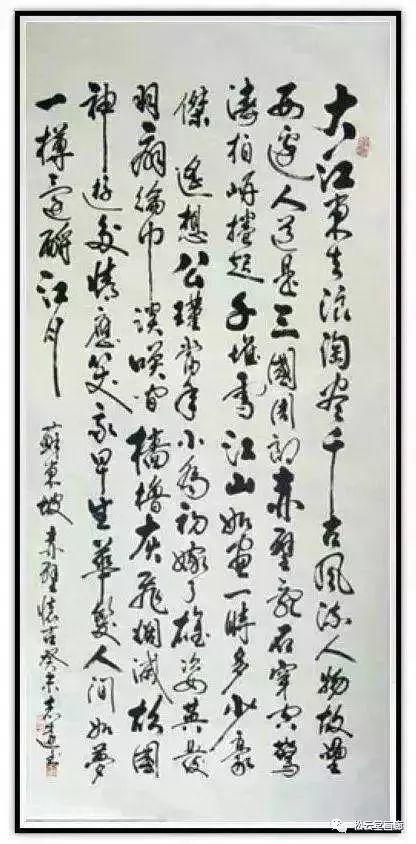 大江東去浪淘盡千古風流人物故壘
西邊人道是三國周郎赤壁亂石穿空驚
濤拍岸捲起千堆雪江山如畫一時多少豪
傑遙想公瑾當年小喬初嫁了雄姿英發
羽扇綸巾談笑間檣櫓灰飛烟滅故國
神遊多情應笑我早生華髮人間如夢
一樽還酹江月
蘇東坡赤壁懷古癸未志書
松云堂画廊